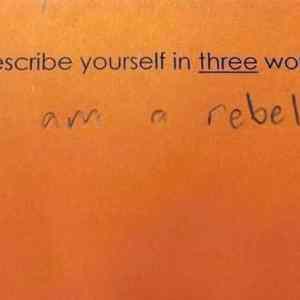 escribe yourself in three wo
am a rebel